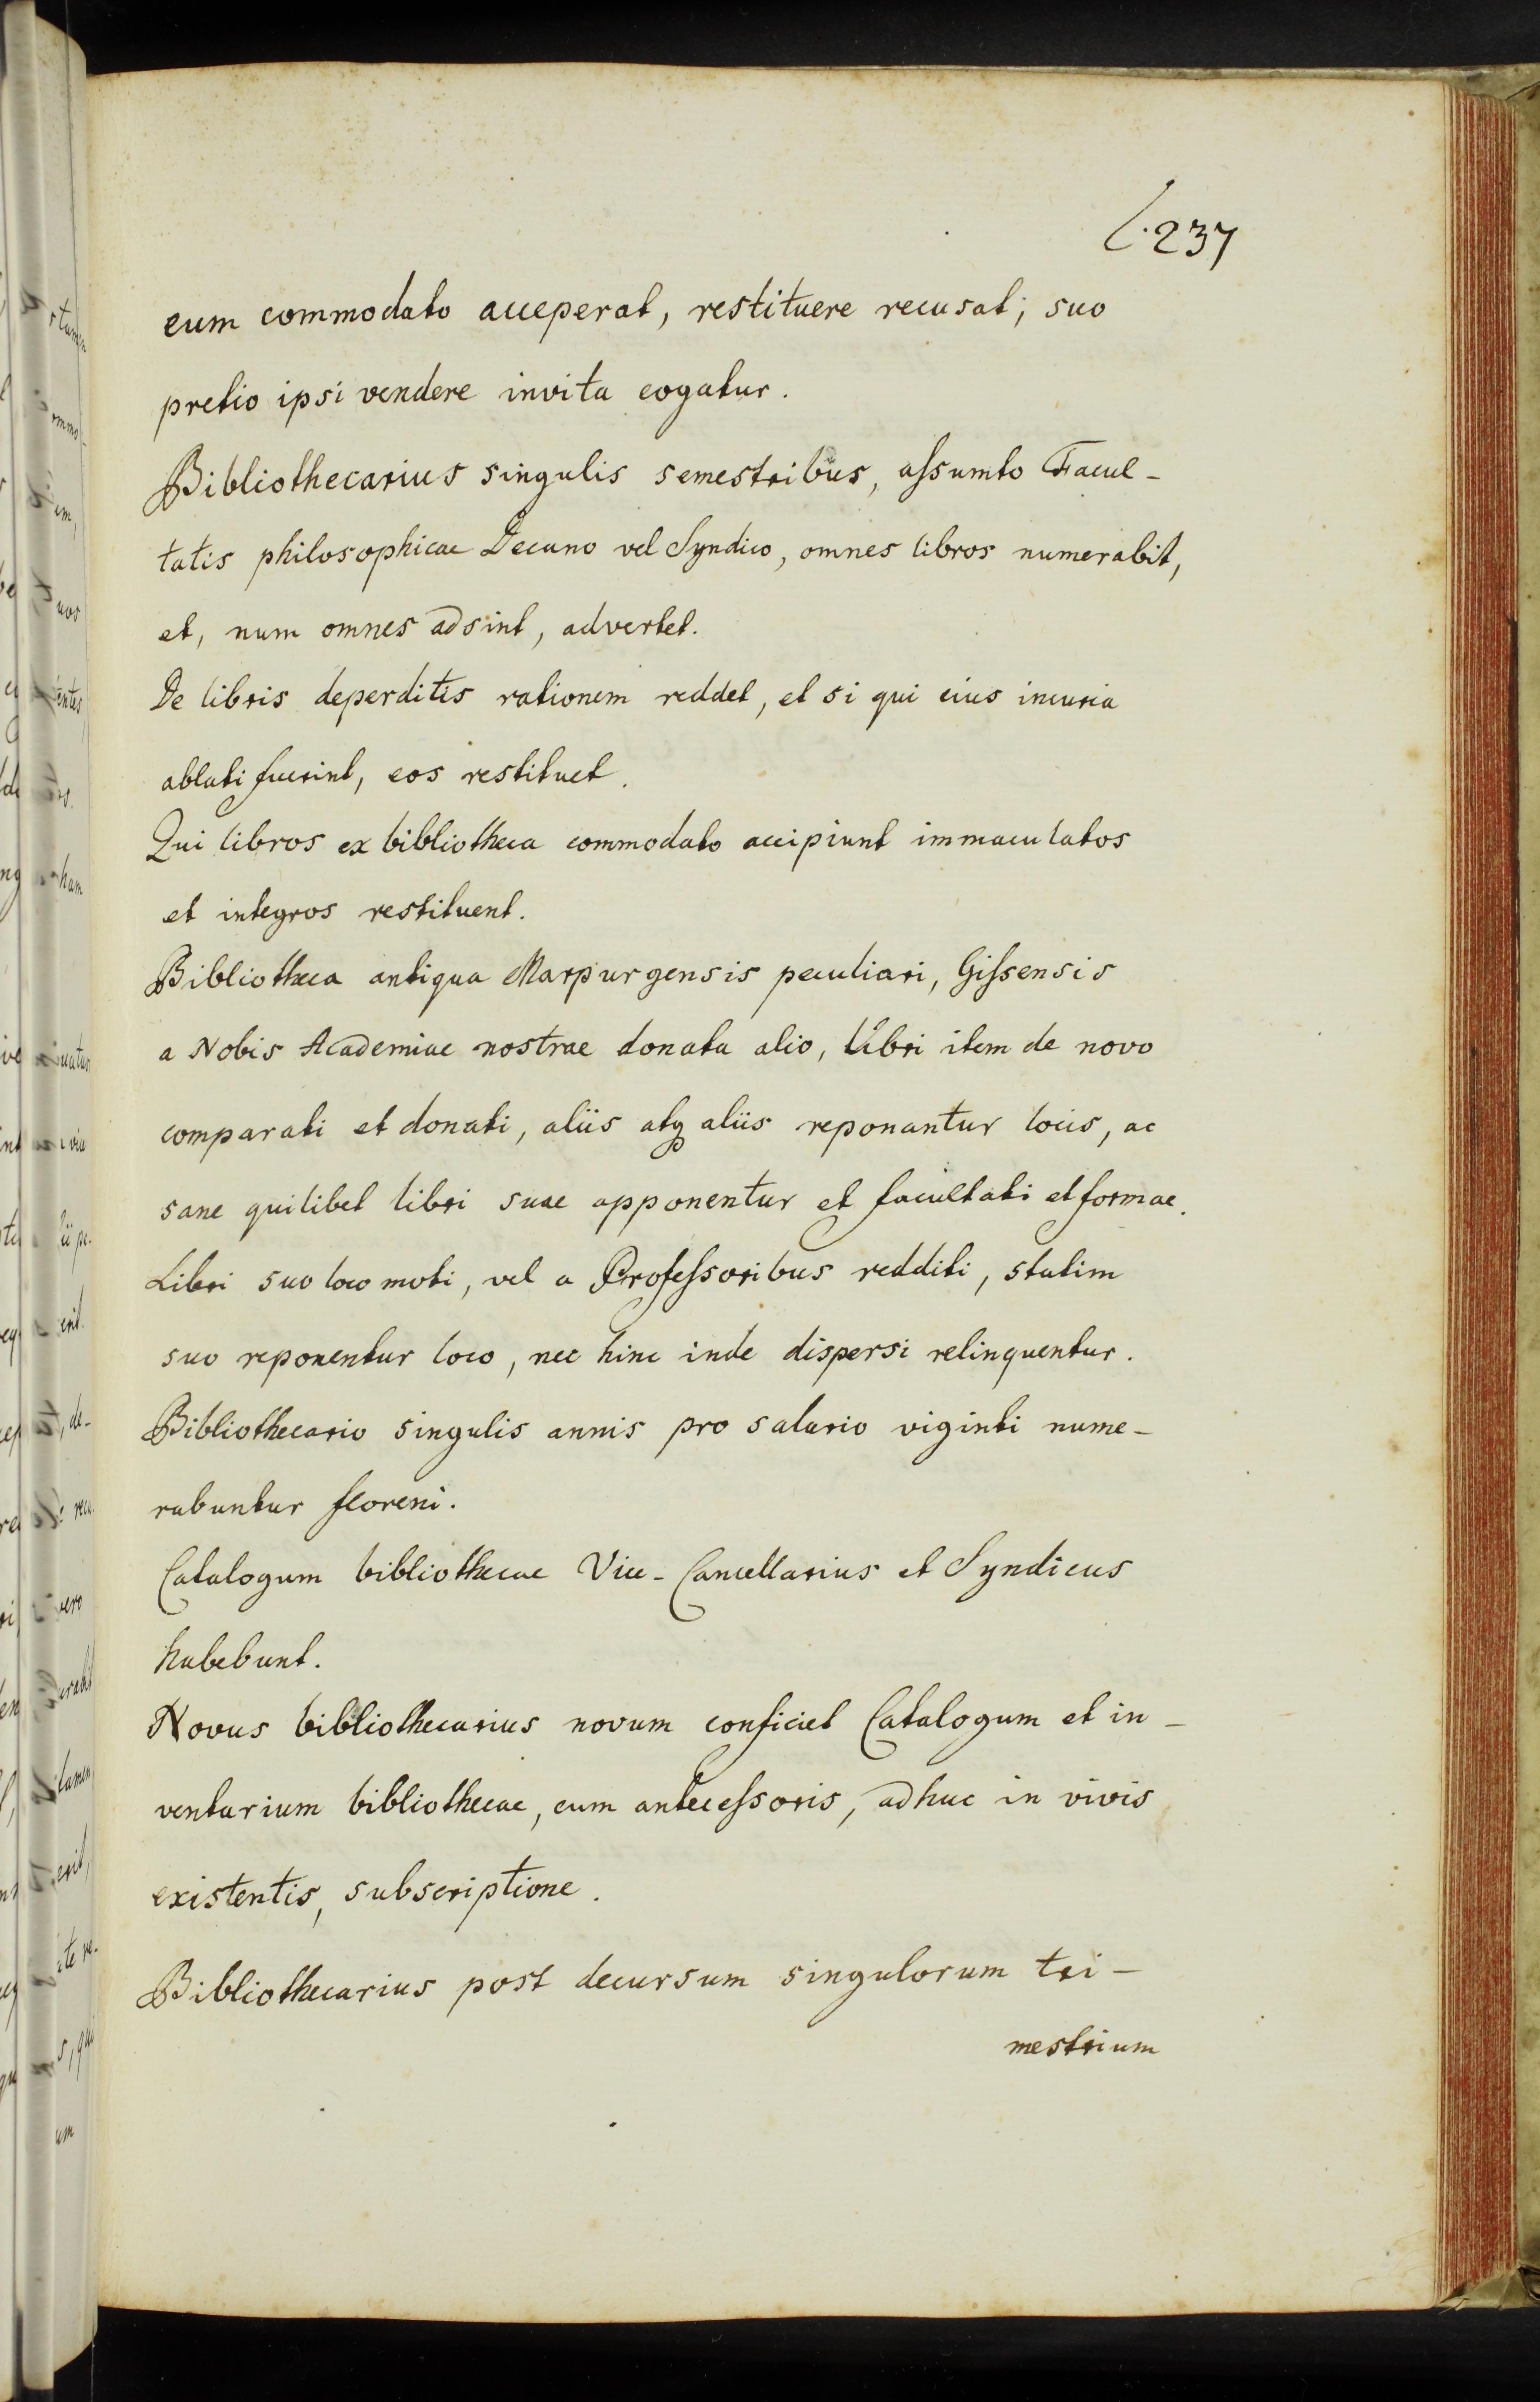 237
eum commodato acceperat, restituere recusat; suo
pretio ipsi vendere invita cogatur.
Bibliothecarius singulis semestribus, assumto Facul-
tatis philosophicae Decano vel Syndico, omnes libros numerabit,
et, num omnes adsint, advertet.
De libris deperditis rationem reddet, et si qui eius incuria
ablati fuerint, eos restituet.
Qui libros ex bibliotheca commodato accipiunt immaculatos
et integros restituent.
Bibliotheca antiqua Marpurgensis peculiari, Gissensis
a Nobis Academiae nostrae donata alio, libri item de novo
comparati et donati, aliis atq aliis reponantur locis, ac
sane quilibet libri suae apponentur et facultati et formae.
Libri suo loco moti, vel a Professoribus redditi, statim
suo reponentur loco, nec hinc inde dispersi relinquentur.
Bibliothecario singulis annis pro salario viginti nume-
rabuntur floreni.
Catalogum bibliothecae Vice-Cancellarius et Syndicus
habebunt.
Novus bibliothecarius novum conficiet Catalogum et in-
ventarium bibliothecae, cum antecessoris, adhuc in vivis
existentis, subscriptione.
Bibliothecarius post decursum singulorum tri-
mestrium